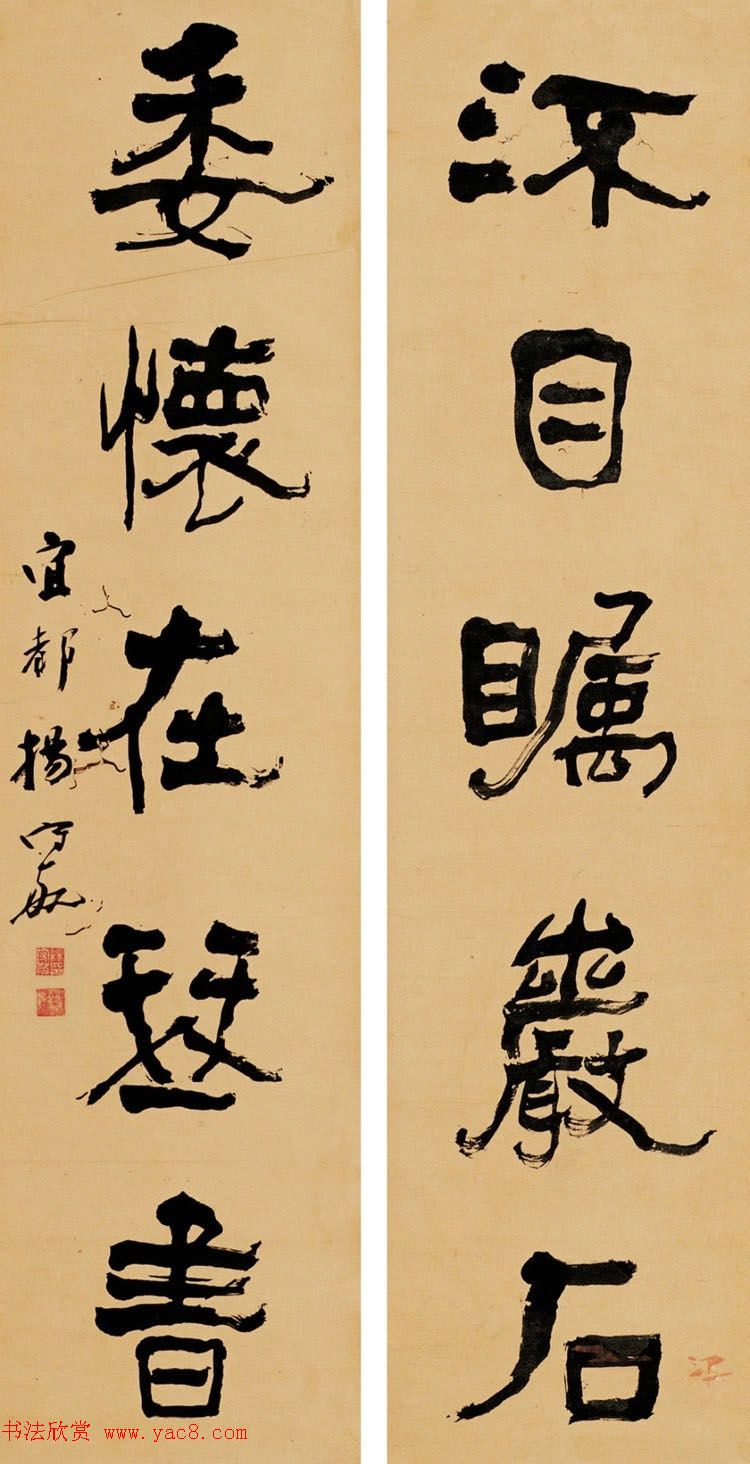 流目矚巖石
委懷在琴書
宜都楊守敬
书法欣赏 www.yac8.com